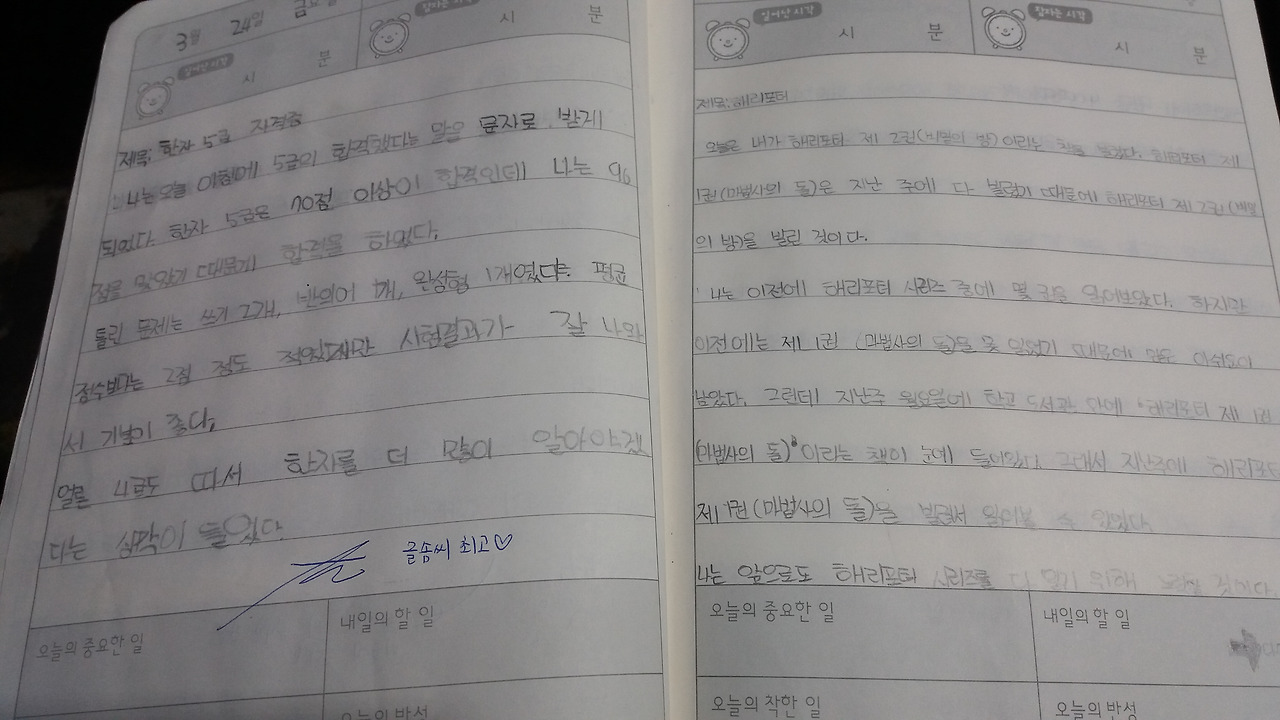 3월 24일 금요일
잠자는 시각
시 분
일어난 시각
시 분
제목: 한자 5급 자격증
나는 오늘 아침에 5급의 합격했다는 말을 문자로 받게
되었다. 한자 5급은 70점 이상이 합격인데 나는 96
점을 맞았기 때문에 합격을 하였다.
틀린 문제는 쓰기 2개, 반의어 1개, 완성형 1개였다. 평균
점수보다는 2점 정도 적었지만 시험결과가 잘 나와
서 기분이 좋다.
얼른 4급도 따서 한자를 더 많이 알아야겠
다는 생각이 들었다.
글솜씨 최고♡
오늘의 중요한 일
내일의 할 일
오늘의 반성
일어난 시각
시 분
잠자는 시각
시 분
제목: 해리포터
오늘은 내가 해리포터 제 2권(비밀의 방)이라는 책을 빌렸다. 해리포터 제
1권(마법사의 돌)은 지난 주에 다 빌렸기 때문에 해리포터 제 2권(비밀
의 방)을 빌린 것이다.
나는 이전에 해리포터 시리즈 중에 몇 권을 읽어보았다. 하지만
이전에는 제 1권 (마법사의 돌)을 못 읽었기 때문에 아쉬움이
남았다. 그런데 지난주 월요일에 학교 도서관 안에 '해리포터 제 1권
(마법사의 돌)'이라는 책이 눈에 들어왔다. 그래서 지난주에 해리포터
제 1권(마법사의 돌)을 빌려서 읽어볼 수 있었다.
나는 앞으로도 해리포터 시리즈를 다 읽기 위해 노력할 것이다.
오늘의 중요한 일
내일의 할 일
오늘의 착한 일
오늘의 반성